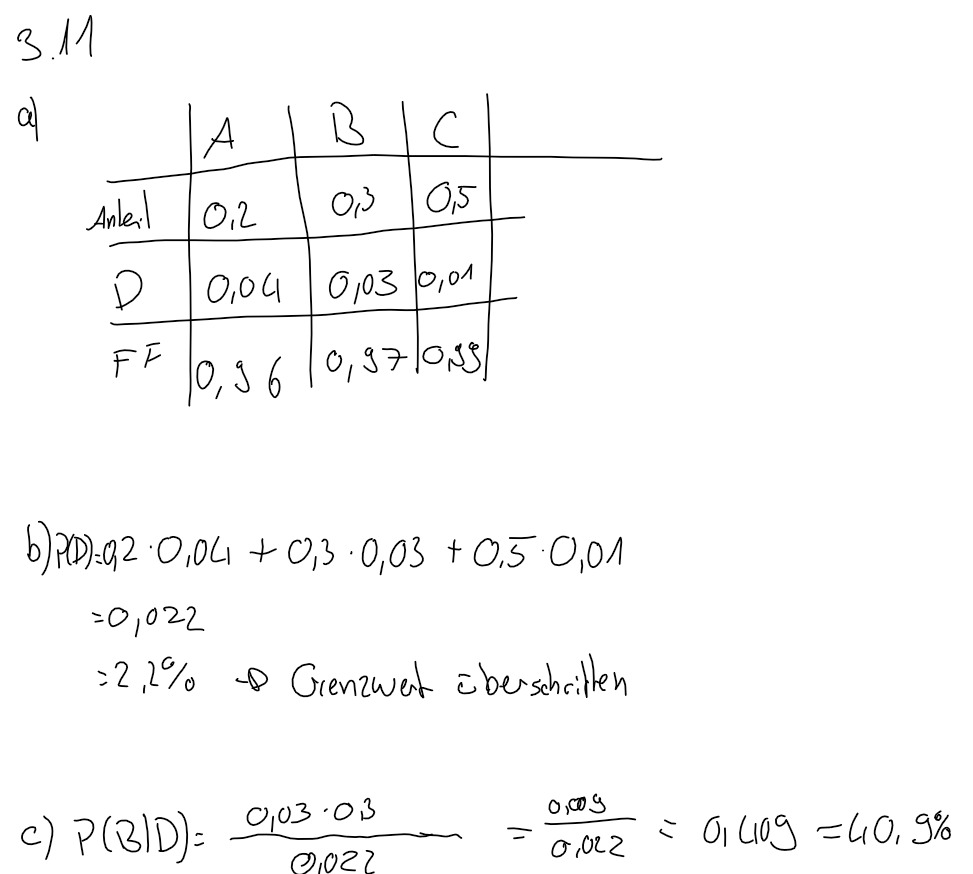 3.11
a)
A B C
Anteil 0,2 0,3 0,5
D 0,04 0,03 0,01
FF 0,96 0,97 0,99
b) P(D)=0,2 · 0,04 + 0,3 · 0,03 + 0,5 · 0,01
=0,022
=2,2% → Grenzwert überschritten
c) P(B|D)= 0,03 · 0,3 / 0,022 = 0,009 / 0,022 = 0,409 = 40,9%